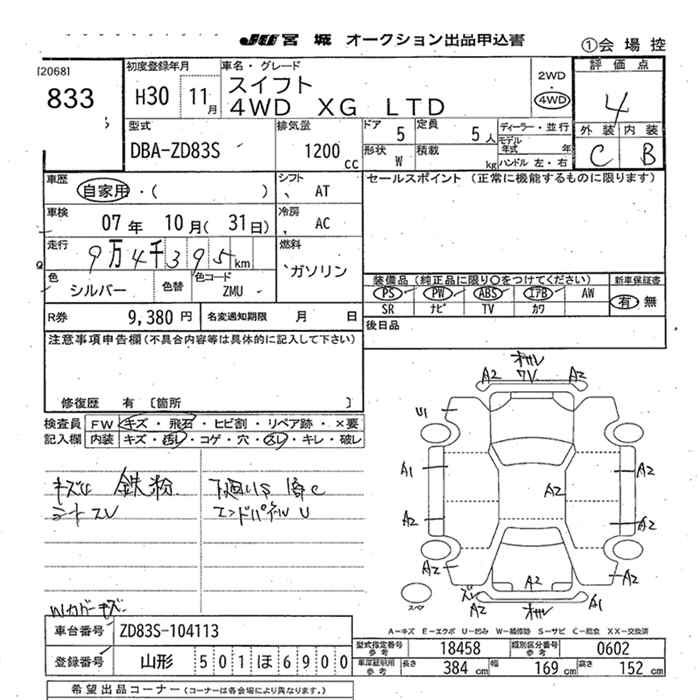 JU 宮城 オークション出品申込書
①会場控
[2068]
833
初度登録年月
H30 11月
車名・グレード
スイフト
4WD XG LTD
2WD
・
4WD
評価点
4
外装 内装
C B
型式
DBA-ZD83S
排気量
1200 cc
ドア 5
定員 5人
形状 W
積載 kg
ディーラー・並行
モデル年式 年
ハンドル 左・右
車歴
自家用・( )
シフト
AT
車検
07年 10月(31日)
冷房
AC
走行
9万4千395km
燃料
ガソリン
色
シルバー
色替
色コード
ZMU
R券 9,380円
名変通知期限 月 日
セールスポイント (正常に機能するものに限ります)
装備品(純正品に限り○をつけてください)
新車保証書
PS PW ABS エアB AW
SR ナビ TV カワ
有・無
後日品
注意事項申告欄(不具合内容等は具体的に記入して下さい)
修復歴 有 〔箇所 〕
検査員
記入欄
FW キズ・飛石・ヒビ割・リペア跡・×要
内装 キズ・汚レ・コゲ・穴・スレ・キレ・破レ
鉄粉
シートスレ
下廻りS 腐C
エンドパネルU
A2 A2
U1
A1 A2
A2
A2 A2
A2 A2
A2
A2 A1
スペア
Wカバーキズ
A-キズ E-エクボ U-凹み W-補修跡 S-サビ C-腐食 XX-交換済
車台番号 ZD83S-104113
登録番号 山形 501ほ6900
型式指定番号 参考 18458
類別区分番号 参考 0602
車庫証明用 参考 長さ 384cm 幅 169cm 高さ 152cm
希望出品コーナー(コーナーは各会場により異なります。)